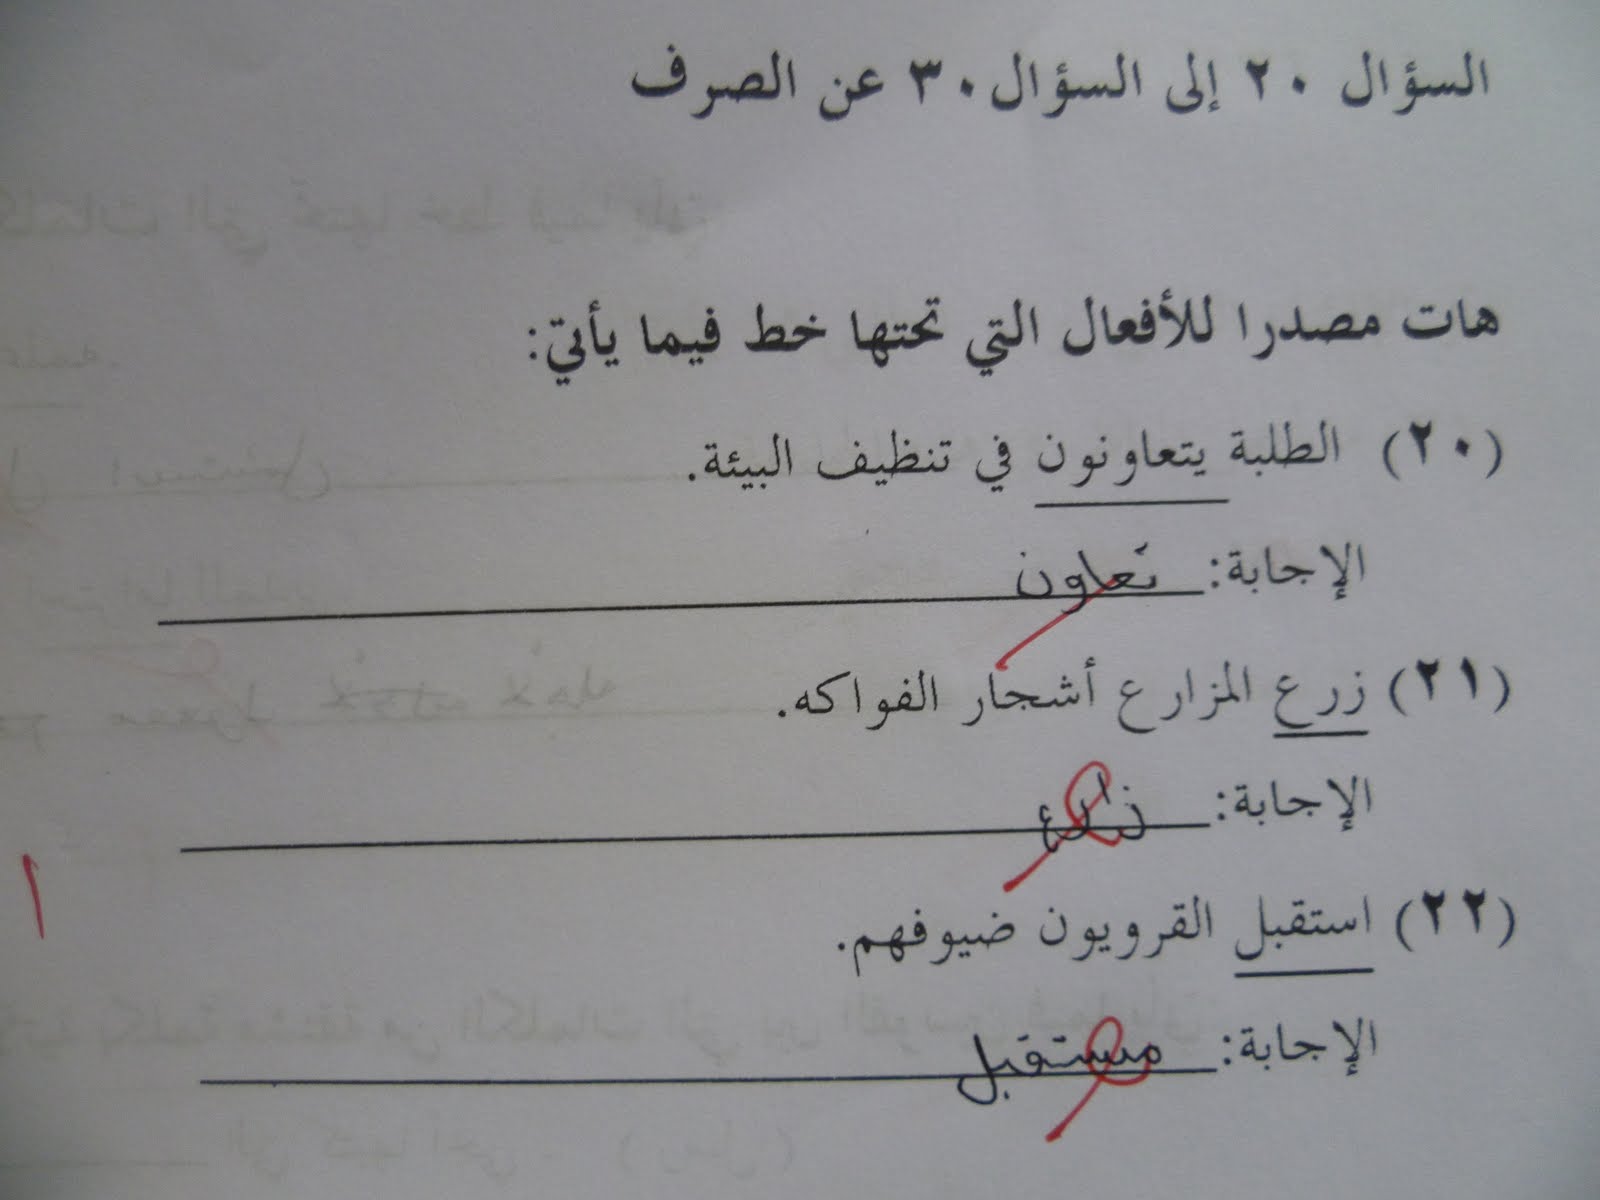 السؤال ٢٠ إلى السؤال ٣٠ عن الصرف
هات مصدرا للأفعال التي تحتها خط فيما يأتي:
(٢٠) الطلبة يتعاونون في تنظيف البيئة.
الإجابة: تعاون
(٢١) زرع المزارع أشجار الفواكه.
الإجابة: زارع
١
(٢٢) استقبل القرويون ضيوفهم.
الإجابة: مستقبل